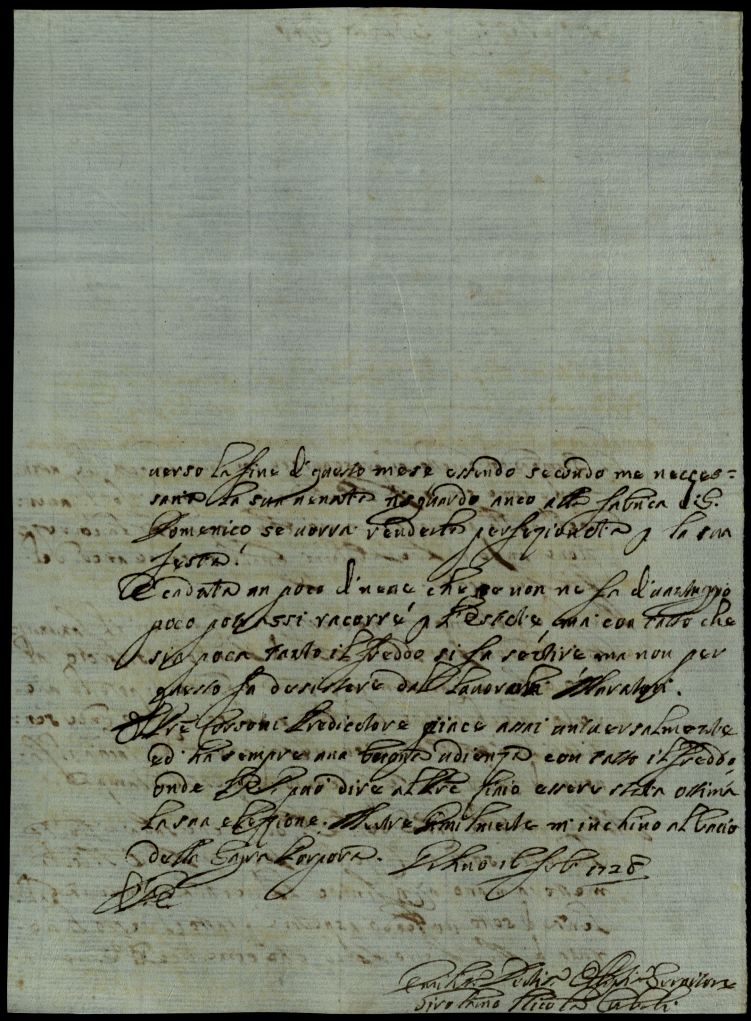 uerso la fine di questo mese essendo secondo me necces=
saria la sua uenuta risguardo anco alla fabrica di S.
Domenico se uorrà renderla perfezionata p la sua
festa.
È caduta un poco di neue che se non ne fa d'uantaggio
poco potrassi racorre p l'Estate ma con tutto che
sia poca tanto il freddo si fa sentire ma non per
questo fa desistere dal lauorare i Muratori.
Il Pre Predicatore piace assai uniuersalmente
ed ha sempre una buona udienza con tutto il freddo
onde può dire al Pre essere stata ottima
la sua elezzione. Mentre umilmente m'inchino al bacio
della Sagra Porpora. Urbno 16 feb. 1728
Seruitore
Girolamo Nicola